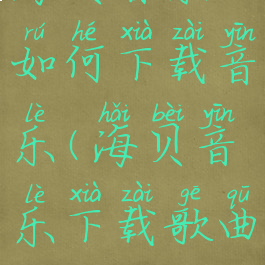 rú hé xià zài yīn
如何下载音
lè hǎi bèi yīn
乐(海贝音
lè xià zài gē qū
乐下载歌曲